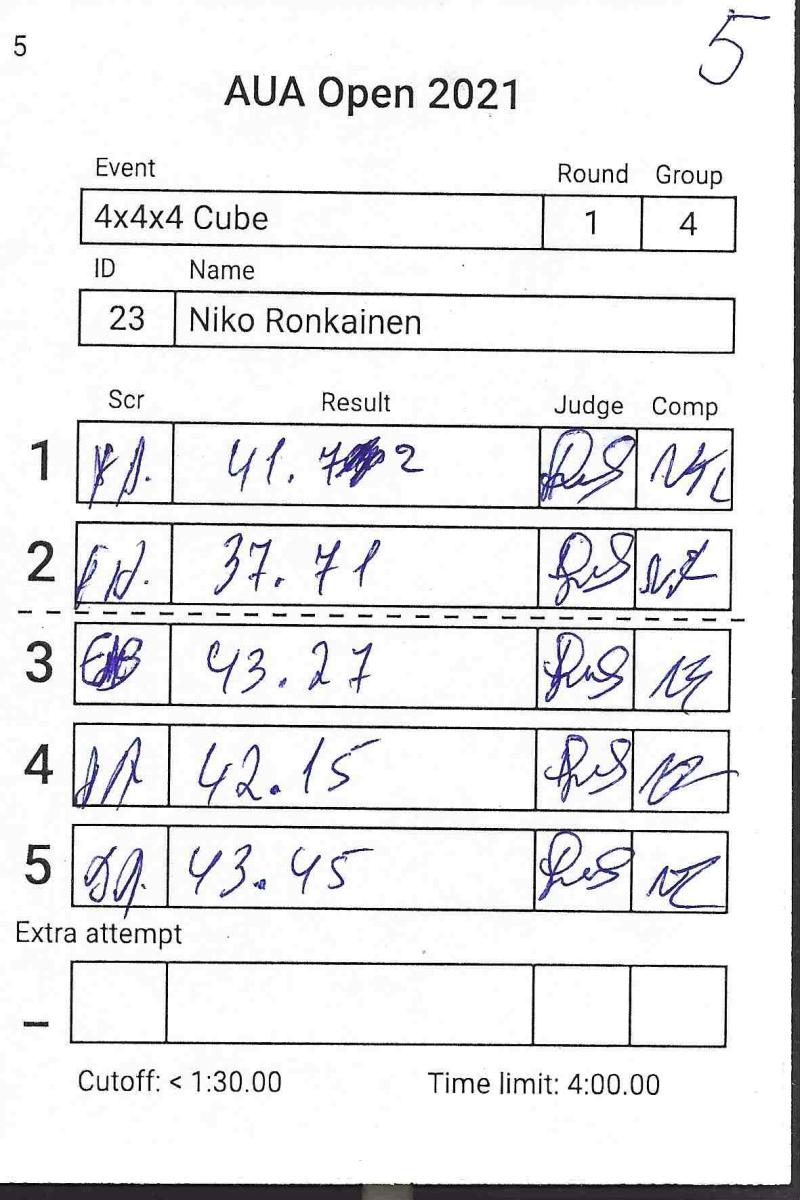 5
5
AUA Open 2021
Event Round Group
4x4x4 Cube 1 4
ID Name
23 Niko Ronkainen
Scr Result Judge Comp
1 41.72
2 37.71
3 43.27
4 42.15
5 43.45
Extra attempt
–
Cutoff: < 1:30.00 Time limit: 4:00.00